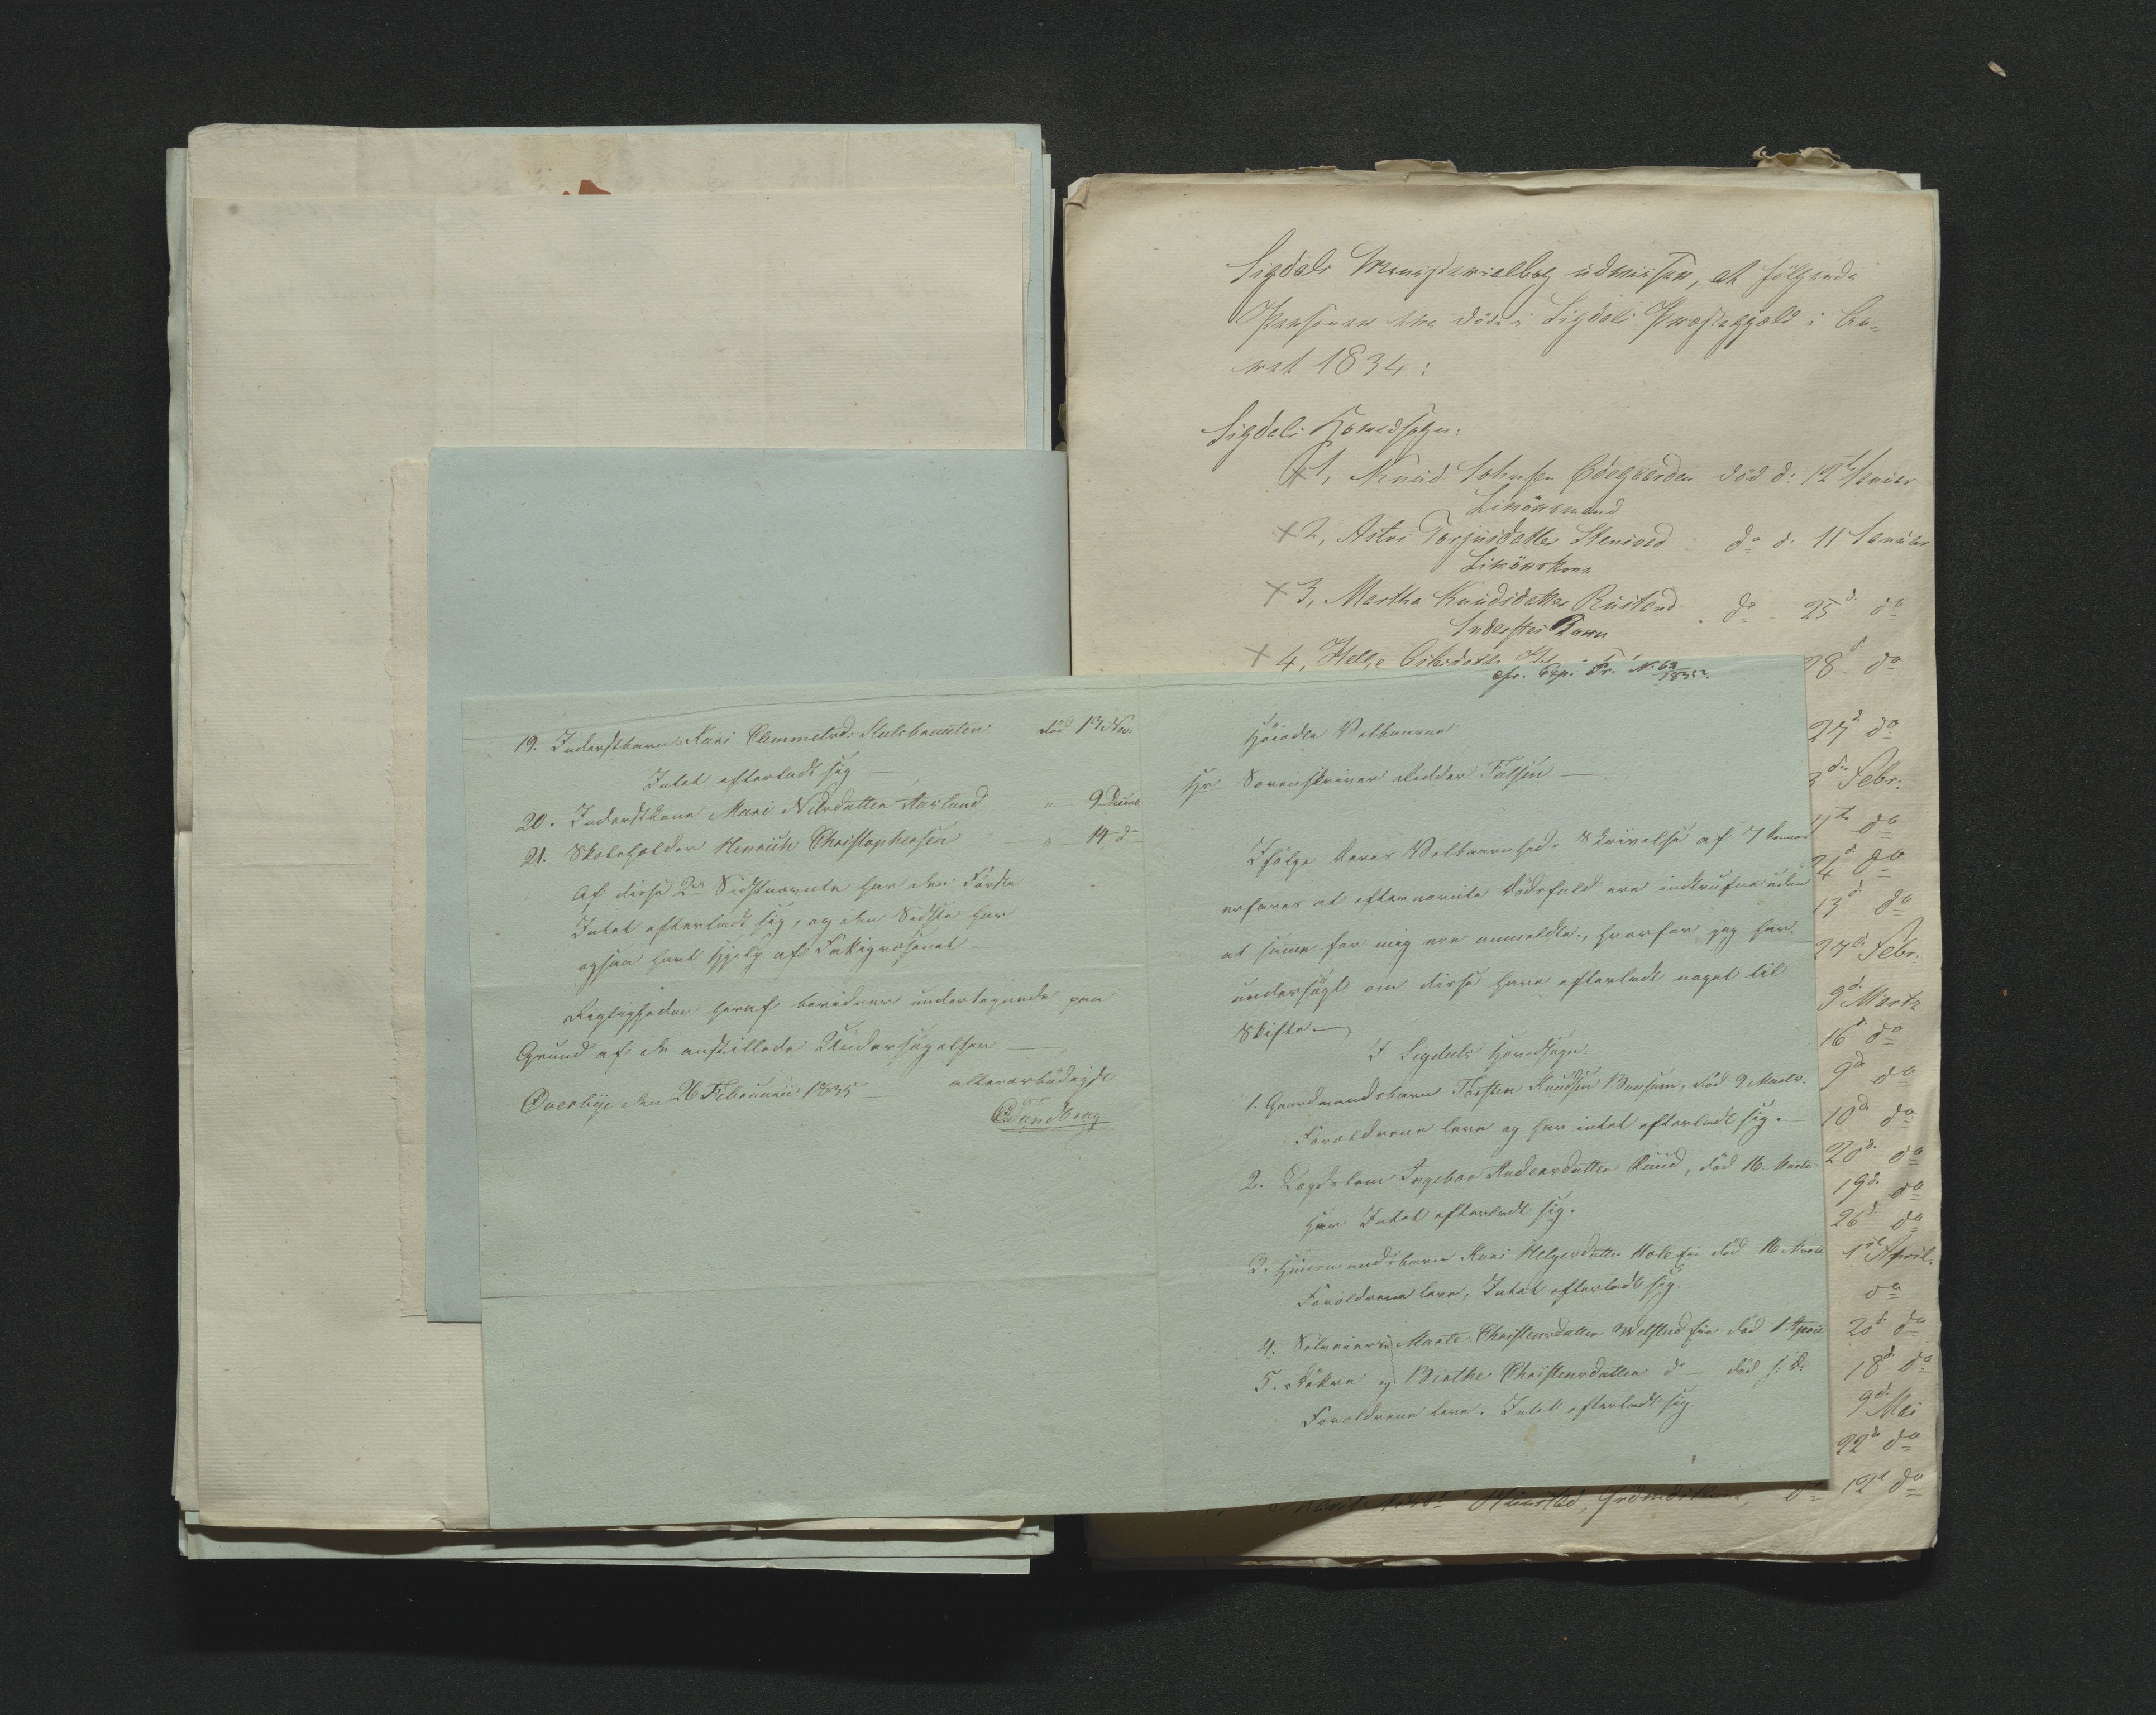 Sigdals Ministerialbog udviser, at følgende
Personer ere døde i Sigdals Præstegjeld i Aa-
ret 1834:
Sigdals Hovedsogn.
1, Knud Johnsen Ødegaarden død d: 12te Januar
Livørsmand
2, Astri Torjusdatter Stenseed do d: 11 Januar
Livørskone
3, Martha Knudsdatter Rustand do 25d. do
Inderstes Barn
4, Helge 28d do
27d do
3die Febr.
11te do
24d. do
13d. do
27d. Febr.
9d. Martz
16d. do
9d do
10d do
20d. do
19d. do
26d do
1ste April.
do
20d. do
18d. do
9d. Mai
22de do
do 12d do
19. Inderstbarn Kari død 13 Nov.
Intet efterladt sig
20. Inderstkone Mari Nilsdatter Aasland " 9 Decemb.
21. Skoleholder Henrich Christophersen " 14 do
Af disse 2de Sidstnævnte har den Første
Intet efterladt sig, og den Sidste har
ogsaa havt Hjelp af Fattigvæsenet
Rigtigheden heraf bevidner undertegnede paa
Grund af de anstillede Undersøgelser
Overbye den 26 Februarii 1835
allerærbødigst
Sundberg
cfr. Exp. Pr. N. 62/1835.
Høiædle Velbaarne
Hr Sorenskriver Ridder Falsen
Ifølge Deres Velbaarenheds Skrivelse af 7
erfares at efternævnte Dødsfald ere indtrufne uden
at samme for mig ere anmeldte, hvorfor jeg har
undersøgt om disse have efterladt noget til
Skifte
I Sigdals Hovedsogn.
1. Gaardmandsbarn Torsten Knudsen Bunsum, død 9 Marts.
Forældrene leve og har intet efterladt sig.
2. Lægdslem Ingebor Andersdatter Ruud, død 16. Marts
Har Intet efterladt sig.
3. Huusmandsbarn Kari Helgesdatter Hole Eie død 16 Marts
Forældrene leve, Intet efterladt sig.
4. Marte Christensdatter Eie død 1. April
5. og Birthe Christensdatter do død s. D.
Forældrene leve. Intet efterladt sig.